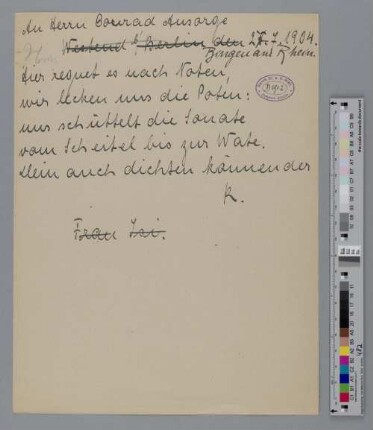 An Herrn Conrad Ansorge
Westend b/ Berlin, den 27.7.1904.
Bingen am Rhein.
Hier regnet es nach Noten,
wir lecken uns die Poten:
uns schüttelt die Sonate
vom Scheitel bis zur Wate.
Dein auch dichten können der
K.
Frau Isi.